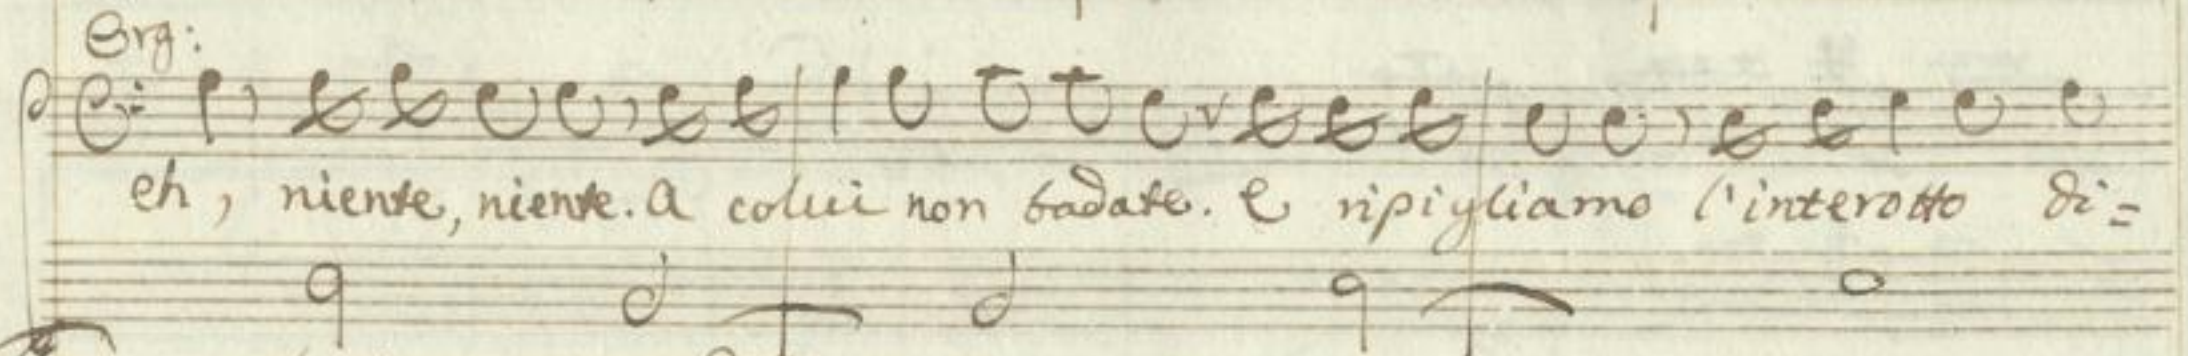 Org:
eh, niente, niente. a colui non badate. e ripigliamo l'interotto di=